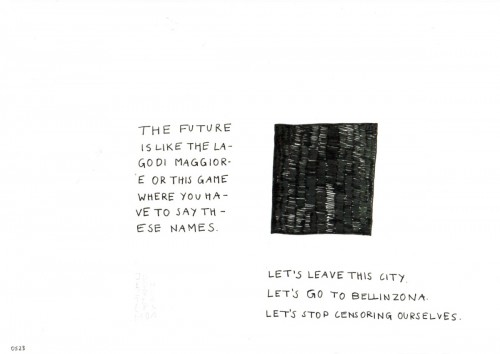 THE FUTURE
IS LIKE THE LA-
GO DI MAGGIOR-
E OR THIS GAME
WHERE YOU HA-
VE TO SAY TH-
ESE NAMES.
LET'S LEAVE THIS CITY.
LET'S GO TO BELLINZONA.
LET'S STOP CENSORING OURSELVES.
0528